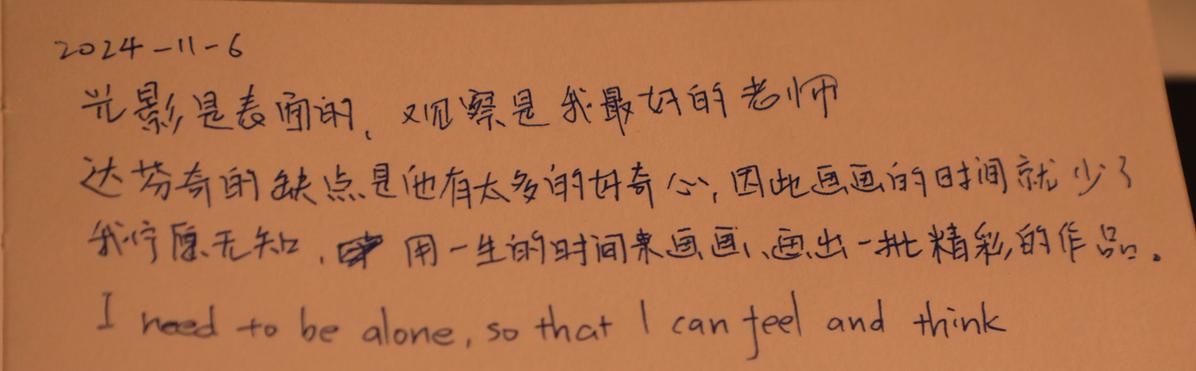 2024-11-6
光影是表面的，观察是我最好的老师
达芬奇的缺点是他有太多的好奇心，因此画画的时间就少了
我宁愿无知，用一生的时间来画画、画出一批精彩的作品。
I need to be alone, so that I can feel and think